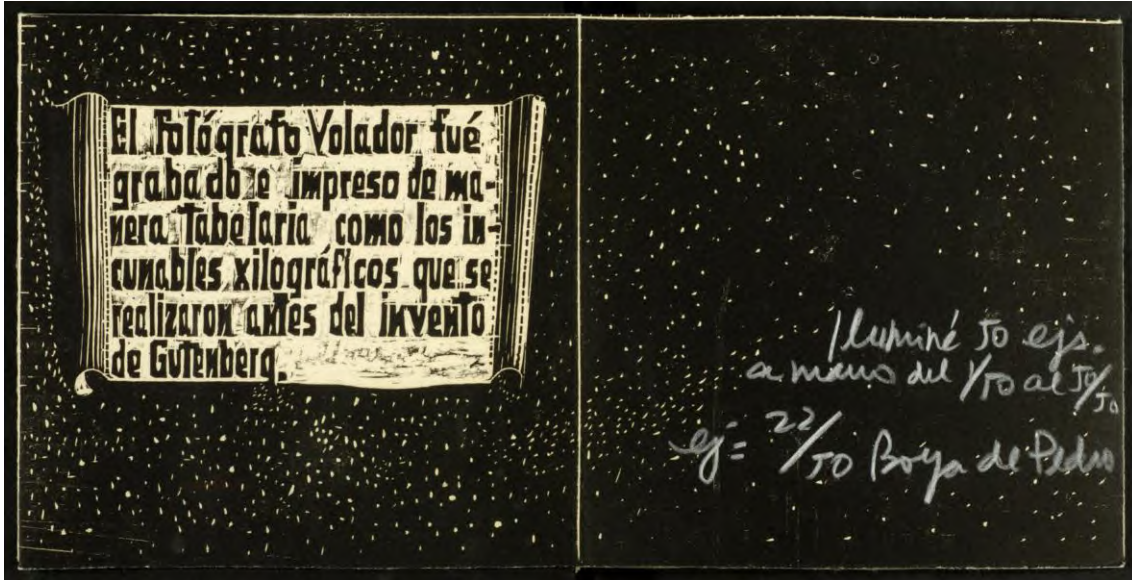 El Fotógrafo Volador fué
grabado e impreso de ma-
nera Tabelaria como los in-
cunables xilográficos que se
realizaron antes del invento
de Gutenberg.
Iluminé 50 ejs.
a mano del 1/50 al 50/50
ej = 22/50 de Pedro